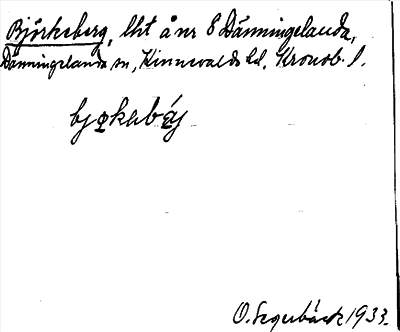 Björkeberg, lht å nr 8 Dänningelanda,
Dänningelanda sn, Kinnevalds hd, Kronob. l.
O. Segerbäck 1933.